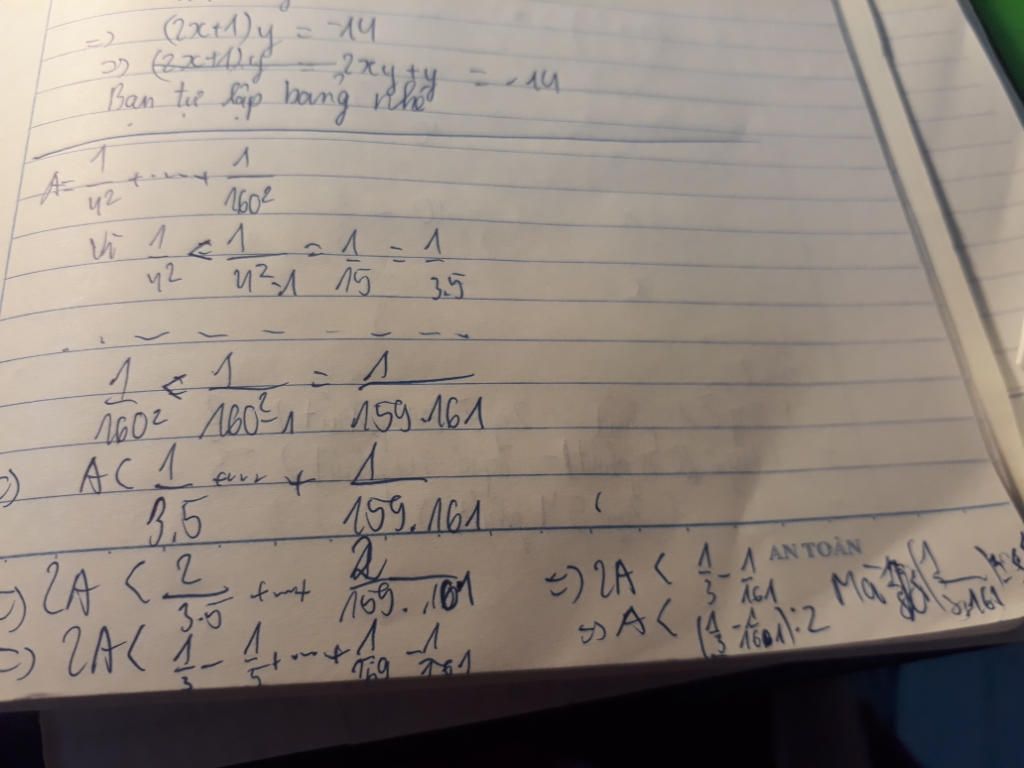 => (2x+1)y = -14
=> (2x+1)y = 2xy+y = -14
Bạn tự lập bảng nhé
A= 1/4² + ... + 1/160²
Vì 1/4² < 1/4²-1 = 1/15 = 1/3.5
1/160² < 1/160²-1 = 1/159.161
=) A< 1/3.5 + ... + 1/159.161
=) 2A < 2/3.5 + ... + 2/159.161
=) 2A< 1/3 - 1/5 + ... + 1/159 - 1/161
AN TOÀN
=) 2A < 1/3 - 1/161
=> A< (1/3 - 1/161):2
Mà